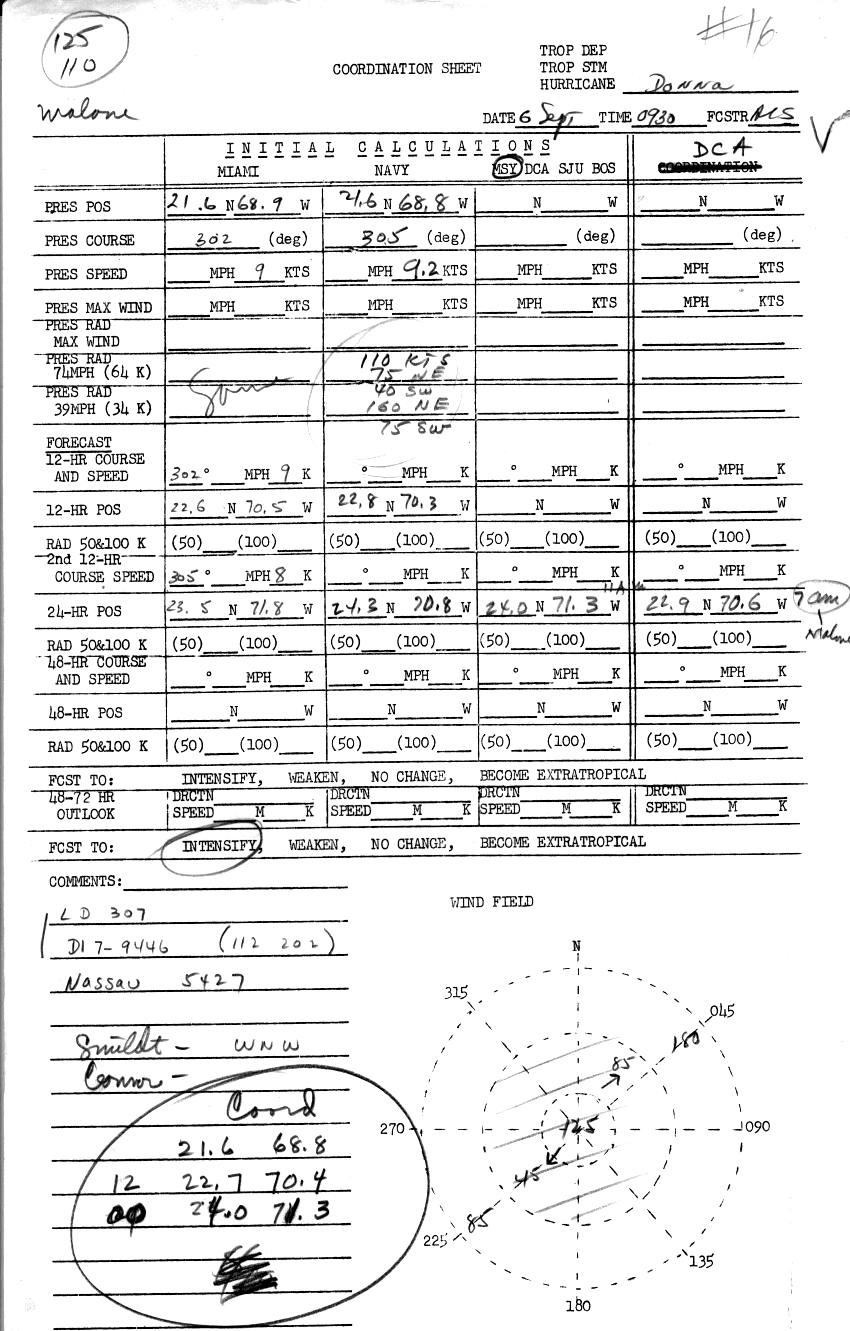 #16
125
110
TROP DEP
COORDINATION SHEET TROP STM
HURRICANE Donna
Malone
DATE 6 Sept TIME 0930 FCSTR
INITIAL CALCULATIONS DCA
MIAMI NAVY MSY DCA SJU BOS COORDINATION
PRES POS 21.6 N 68.9 W 21.6 N 68.8 W N W N W
PRES COURSE 302 (deg) 305 (deg) (deg) (deg)
PRES SPEED MPH 9 KTS MPH 9.2 KTS MPH KTS MPH KTS
PRES MAX WIND MPH KTS MPH KTS MPH KTS MPH KTS
PRES RAD
MAX WIND
PRES RAD 110 KTS
74MPH (64 K) Same 75 NE
PRES RAD 40 SW
39MPH (34 K) 160 NE
75 SW
FORECAST
12-HR COURSE
AND SPEED 302° MPH 9 K ° MPH K ° MPH K ° MPH K
12-HR POS 22.6 N 70.5 W 22.8 N 70.3 W N W N W
RAD 50&100 K (50) (100) (50) (100) (50) (100) (50) (100)
2nd 12-HR
COURSE SPEED 305° MPH 8 K ° MPH K ° MPH K ° MPH K
11 AM
24-HR POS 23.5 N 71.8 W 24.3 N 70.8 W 24.0 N 71.3 W 22.9 N 70.6 W 7 am
Malone
RAD 50&100 K (50) (100) (50) (100) (50) (100) (50) (100)
48-HR COURSE
AND SPEED ° MPH K ° MPH K ° MPH K ° MPH K
48-HR POS N W N W N W N W
RAD 50&100 K (50) (100) (50) (100) (50) (100) (50) (100)
FCST TO: INTENSIFY, WEAKEN, NO CHANGE, BECOME EXTRATROPICAL
48-72 HR DRCTN DRCTN DRCTN DRCTN
OUTLOOK SPEED M K SPEED M K SPEED M K SPEED M K
FCST TO: INTENSIFY, WEAKEN, NO CHANGE, BECOME EXTRATROPICAL
COMMENTS:
LD 307
DI 7-9446 (112 202)
Nassau 5427
WNW
Connor -
Coord
21.6 68.8
12 22.7 70.4
00 24.0 71.3
WIND FIELD
N
315 045
180
85
270 125 090
45
85
225 135
180